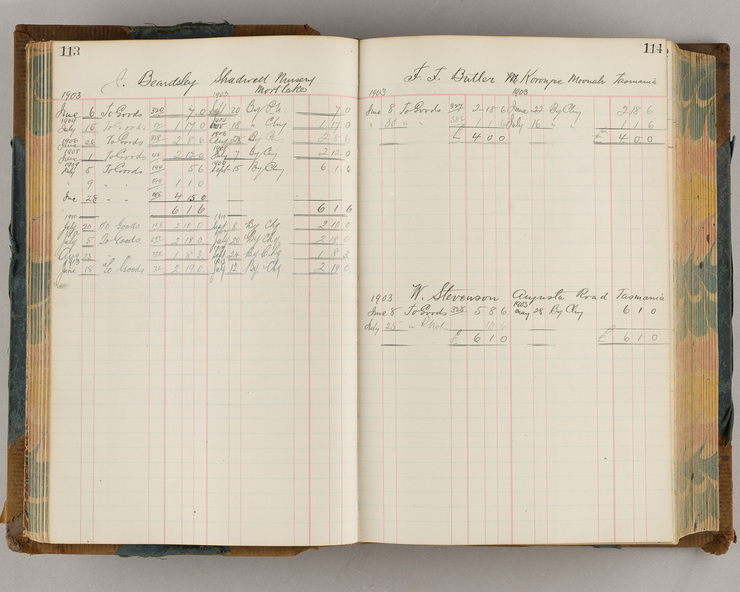 113
J. Beardsley Shadwell Nursery
Mortlake
1903 1903
June 6 To Goods 7 0 10 By 7 0
July 15 To Goods 1 17 0 18 Chq 1 17 0
To Goods 2 5 6 Aug 28 By
1905
June 1 To Goods 2 12 0 July 7 By Chq 2 12 0
5 To Goods 5 6 Sept 15 By Chq 6 1 6
" 9 " " 1 1 0
June 28 " " 4 15 0
6 1 6 6 1 6
1910
July 20 To Goods 2 10 0 Sept 8 By Chq 2 10 0
July 5 To Goods 2 18 0 July 20 By Chq 2 18 0
Aug 23 " " 1 8 3 Sept 24 By Chq 1 8 3
June 18 To Goods 2 19 0 July 12 By Chq 2 19 0
114
F. F. Butler Moonah Tasmania
1903 1903
June 8 To Goods 327 2 18 6 June 27 By Chq 2 18 6
" 20 " " 1 1 6 July 16 " " 1 1 6
£ 4 0 0 £ 4 0 0
W. Stevenson Augusta Road Tasmania
1903 1903
June 8 To Goods 328 5 8 6 May 28 By Chq 6 1 0
July 25 12 6
£ 6 1 0 £ 6 1 0